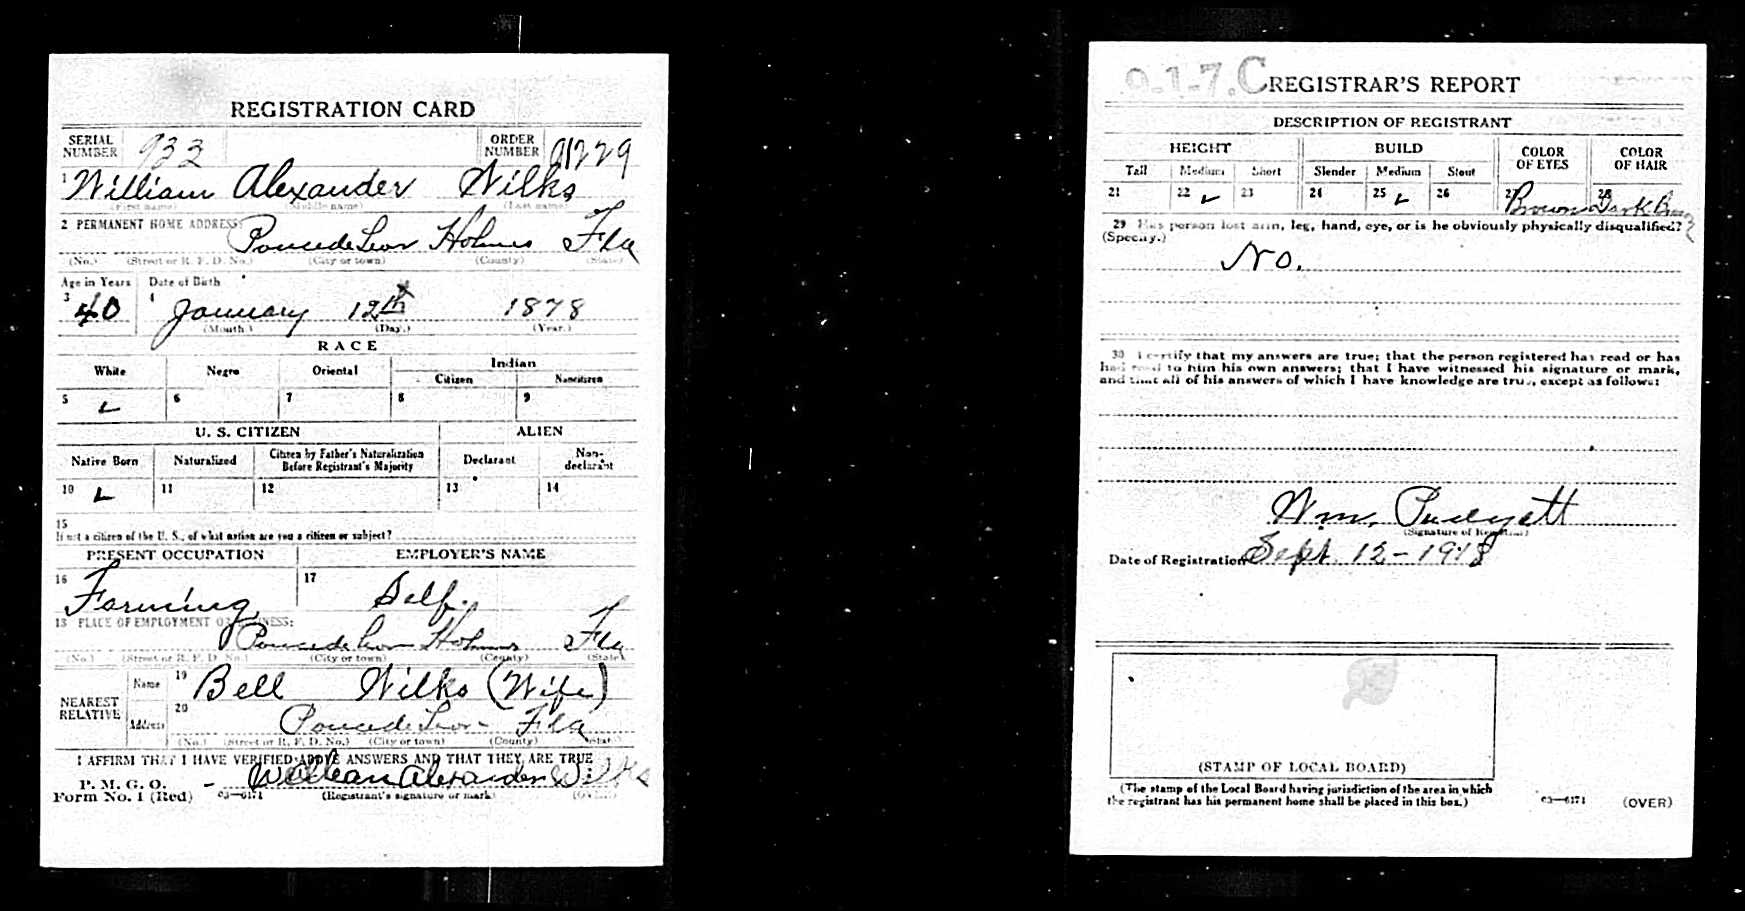 REGISTRATION CARD
SERIAL NUMBER 933 ORDER NUMBER
1 William Alexander Wilks
(First name) (Middle name) (Last name)
2 PERMANENT HOME ADDRESS: Poncede Leon Holmes Fla
(No.) (Street or R. F. D. No.) (City or town) (County) (State)
Age in Years Date of Birth
3 40 4 January 12th 1878
(Month.) (Day.) (Year.)
RACE
White Negro Oriental Indian
Citizen Noncitizen
5 6 7 8 9
U. S. CITIZEN ALIEN
Native Born Naturalized Citizen by Father's Naturalization Before Registrant's Majority Declarant Non-declarant
10 11 12 13 14
15
If not a citizen of the U. S., of what nation are you a citizen or subject?
PRESENT OCCUPATION EMPLOYER'S NAME
16 Farming 17 Self.
18 PLACE OF EMPLOYMENT OR BUSINESS:
Poncede Leon Holmes Fla
(No.) (Street or R. F. D. No.) (City or town) (County) (State)
NEAREST RELATIVE Name 19 Bell Wilks (Wife)
Address 20 Poncede Leon - Fla
(No.) (Street or R. F. D. No.) (City or town) (County) (State)
I AFFIRM THAT I HAVE VERIFIED ABOVE ANSWERS AND THAT THEY ARE TRUE
P. M. G. O. William Alexander Wilks
Form No. 1 (Red) 03—6171 (Registrant's signature or mark) (OVER)
9-1-7.C REGISTRAR'S REPORT
DESCRIPTION OF REGISTRANT
HEIGHT BUILD COLOR OF EYES COLOR OF HAIR
Tall Medium Short Slender Medium Stout
21 22 23 24 25 26 27 Brown 28 Dark Brown
29 Has person lost arm, leg, hand, eye, or is he obviously physically disqualified?
(Specify.)
No.
30 I certify that my answers are true; that the person registered has read or has
had read to him his own answers; that I have witnessed his signature or mark,
and that all of his answers of which I have knowledge are true, except as follows:
Wm.
(Signature of Registrar)
Date of Registration Sept. 12-1918
(STAMP OF LOCAL BOARD)
(The stamp of the Local Board having jurisdiction of the area in which
the registrant has his permanent home shall be placed in this box.)
03—6171 (OVER)